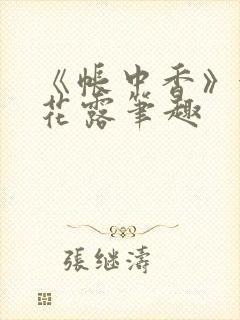 《帐中香》
花露笔趣
張继濤